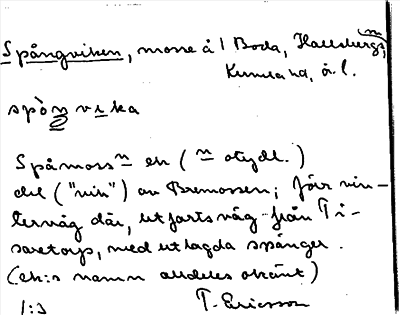 Spångviken, mosse å 1 Boda, Hallsbergs,
Kumla hd, ö. l.
spòŋ vika
Spåmossn ek (n otydl.)
del ("vik") av Bremossen; förr vin-
terväg där, utfartsväg från Ti-
saretorp, med utlagda spänger.
(ek:s namn alldeles okänt)
1:3 T. Ericsson